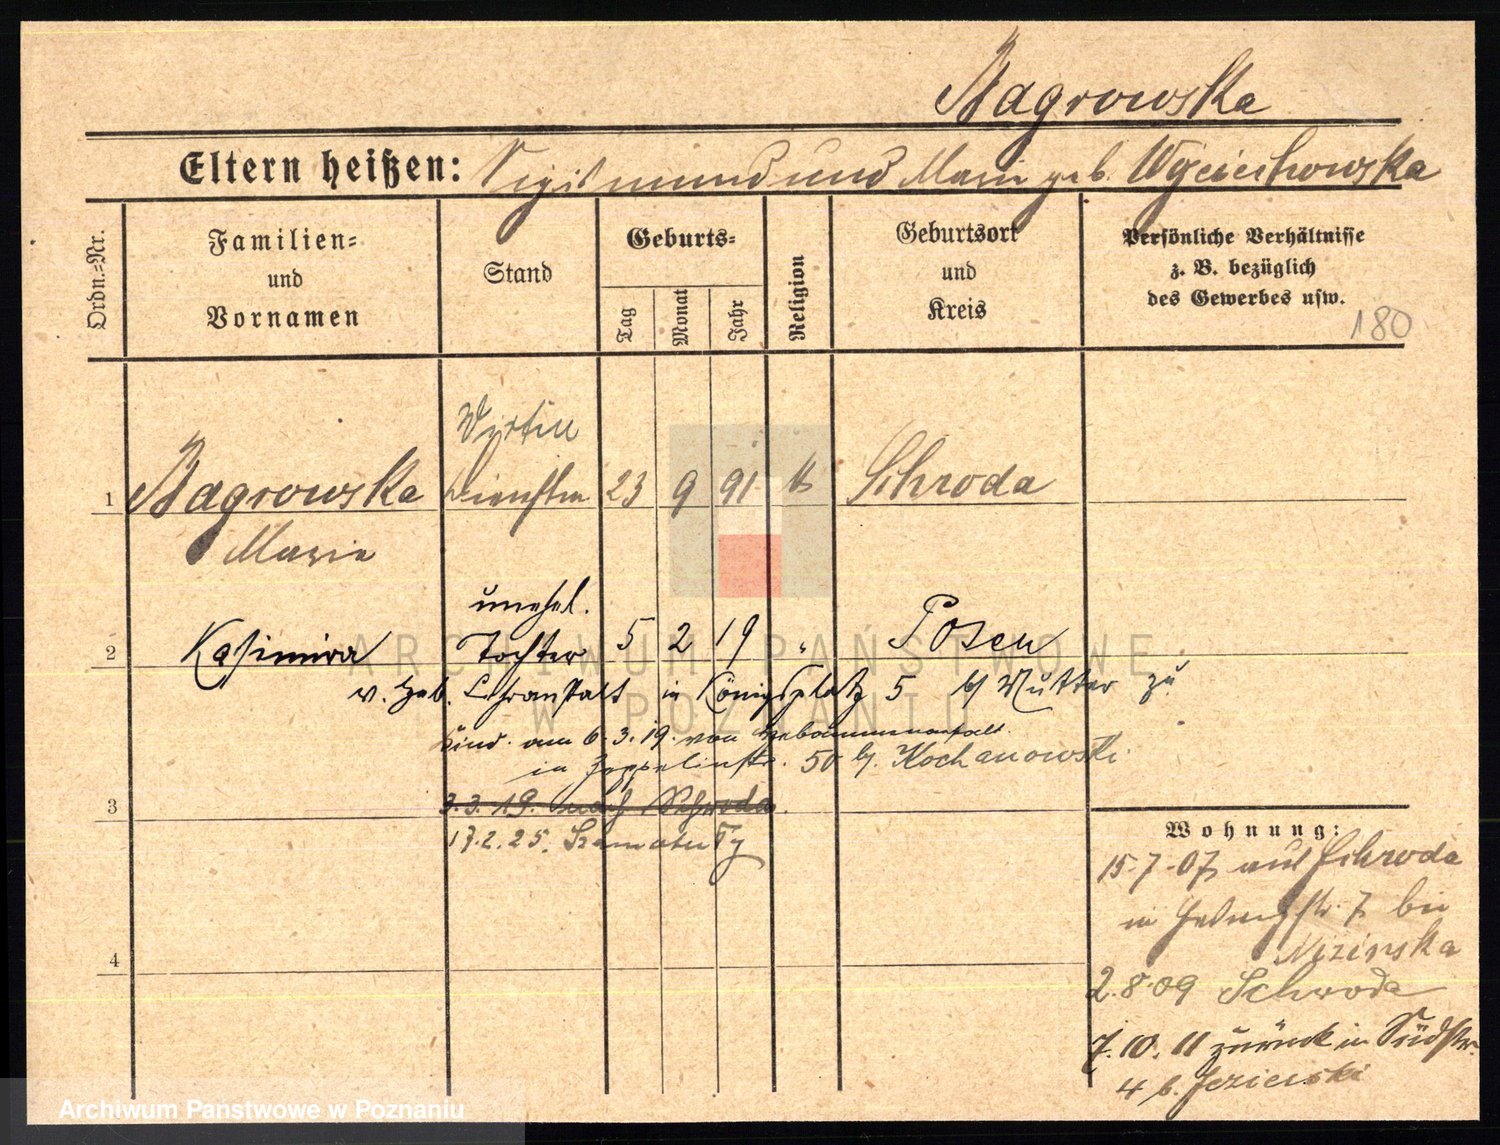 Bagrowska
Eltern heißen: Sigismund und Marie geb. Wojciechowska
Ordn.-Nr.
Familien-
und
Vornamen
Stand
Geburts-
Tag
Monat
Jahr
Religion
Geburtsort
und
Kreis
Persönliche Verhältnisse
z. B. bezüglich
des Gewerbes usw.
180
Wirtin
1 Bagrowska Dienstm 23 9 91 k Schroda
Marie
unehel.
2 Kasimira Tochter 5 2 19 " Posen
v. Heb. Lehranstalt in Königsplatz 5 b/ Mutter zu
Kind am 6.3.19. von Hebammenanstalt
in Zeppelinstr. 50 bj. Kochanowski
3 3.3.19. nach Schroda
17.2.25. Szamotuły
4
Wohnung:
15.7.07 aus Schroda
in 7 bei
2.8.09 Schroda
7.10.11 zurück in Südstr.
4 b. Jezierski
ARCHIWUM PAŃSTWOWE
W POZNANIU
Archiwum Państwowe w Poznaniu